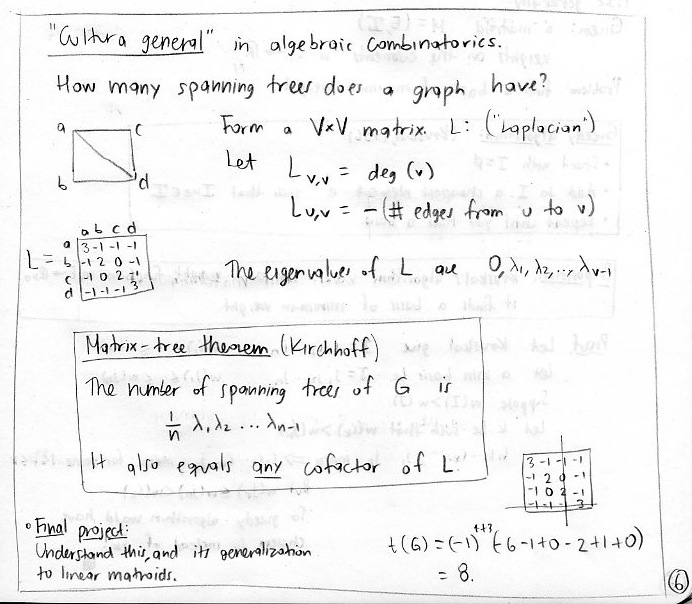 "Cultura general" in algebraic combinatorics.
How many spanning trees does a graph have?
a c
b d
Form a V×V matrix L: ("Laplacian")
Let L_{v,v} = deg (v)
L_{u,v} = -(# edges from u to v)
a b c d
L = a 3 -1 -1 -1
b -1 2 0 -1
c -1 0 2 -1
d -1 -1 -1 3
The eigenvalues of L are 0, λ₁, λ₂, ..., λ_{v-1}
Matrix-tree theorem (Kirchhoff)
The number of spanning trees of G is
1/n λ₁ λ₂ ... λ_{n-1}
It also equals any cofactor of L.
3 -1 -1 -1
-1 2 0 -1
-1 0 2 -1
-1 -1 -1 3
° Final project:
Understand this, and its generalization
to linear matroids.
t(G) = (-1)^{4+3} (-6-1+0-2+1+0)
= 8.
6